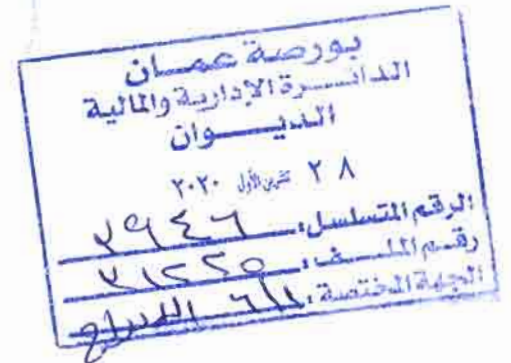 بورصة عمان
الدائرة الإدارية والمالية
الديوان
٢٨ تشرين الأول ٢٠٢٠
الرقم المتسلسل: ٣٩٤٦
رقم الملف: ٣١٢٢٥
الجهة المختصة: